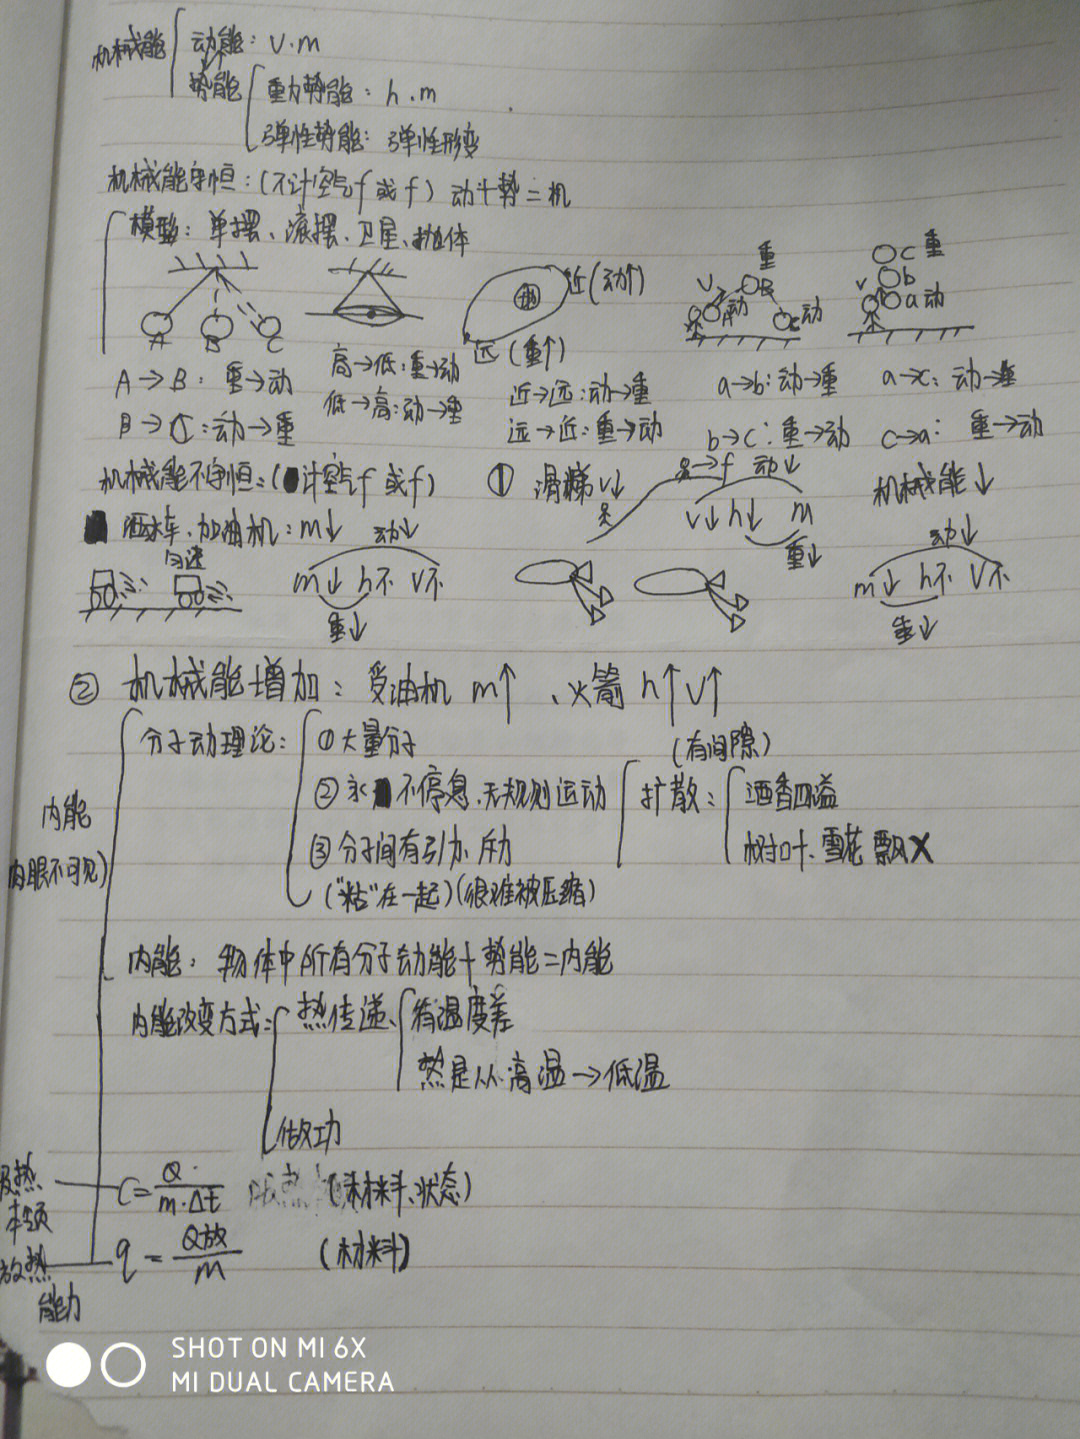 机械能 动能：v.m
势能 重力势能：h.m
弹性势能：弹性形变
机械能守恒：(不计空气f 或 f) 动+势=机
模型：单摆、滚摆、卫星、抛体
A B C
近(动↑) 地 远(重↑)
V A动 重 B C动
C 重 b v a 动
A→B：重→动 高→低：重→动 近→远：动→重 a→b：动→重 a→c：动→重
B→C：动→重 低→高：动→重 远→近：重→动 b→c：重→动 c→a：重→动
机械能不守恒：(计空气f 或 f) ① 滑梯 v↓ →f 动↓ 机械能↓
v↓ h↓ m 重↓
洒水车、加油机：m↓ 动↓ 动↓
匀速 m↓ h不 v不 m↓ h不 V不
重↓ 重↓
② 机械能增加：受油机 m↑、火箭 h↑v↑
分子动理论：①大量分子 (有间隙)
②永不停息、无规则运动 扩散：酒香四溢
内能 ③分子间有引力、斥力 树叶、雪花飘X
肉眼不可见) ("粘"在一起)(很难被压缩)
内能：物体中所有分子动能+势能=内能
内能改变方式：热传递、有温度差
热是从高温→低温
做功
吸热本领 C=Q/m·Δt 吸热 (材料、状态)
放热能力 q=Q放/m (材料)
SHOT ON MI 6X
MI DUAL CAMERA